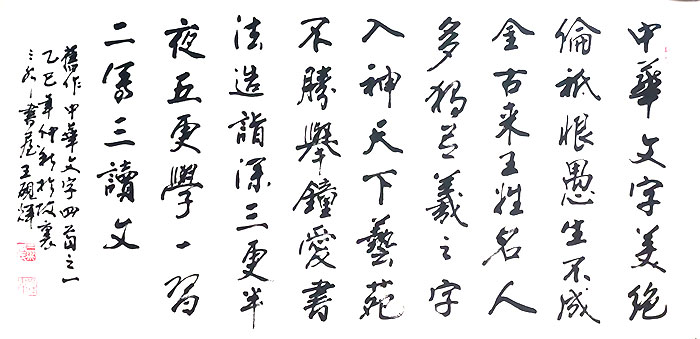 中華文字美絶
倫祇恨愚生不成
金古来王姓名人
多獨羲之字
入神天下藝苑
不勝舉鐘愛書
法造詣深三更半
夜五更學一習
二寫三讀文
舊作中華文字四首之一
乙巳年仲秋於故裏
書屋王硯輝